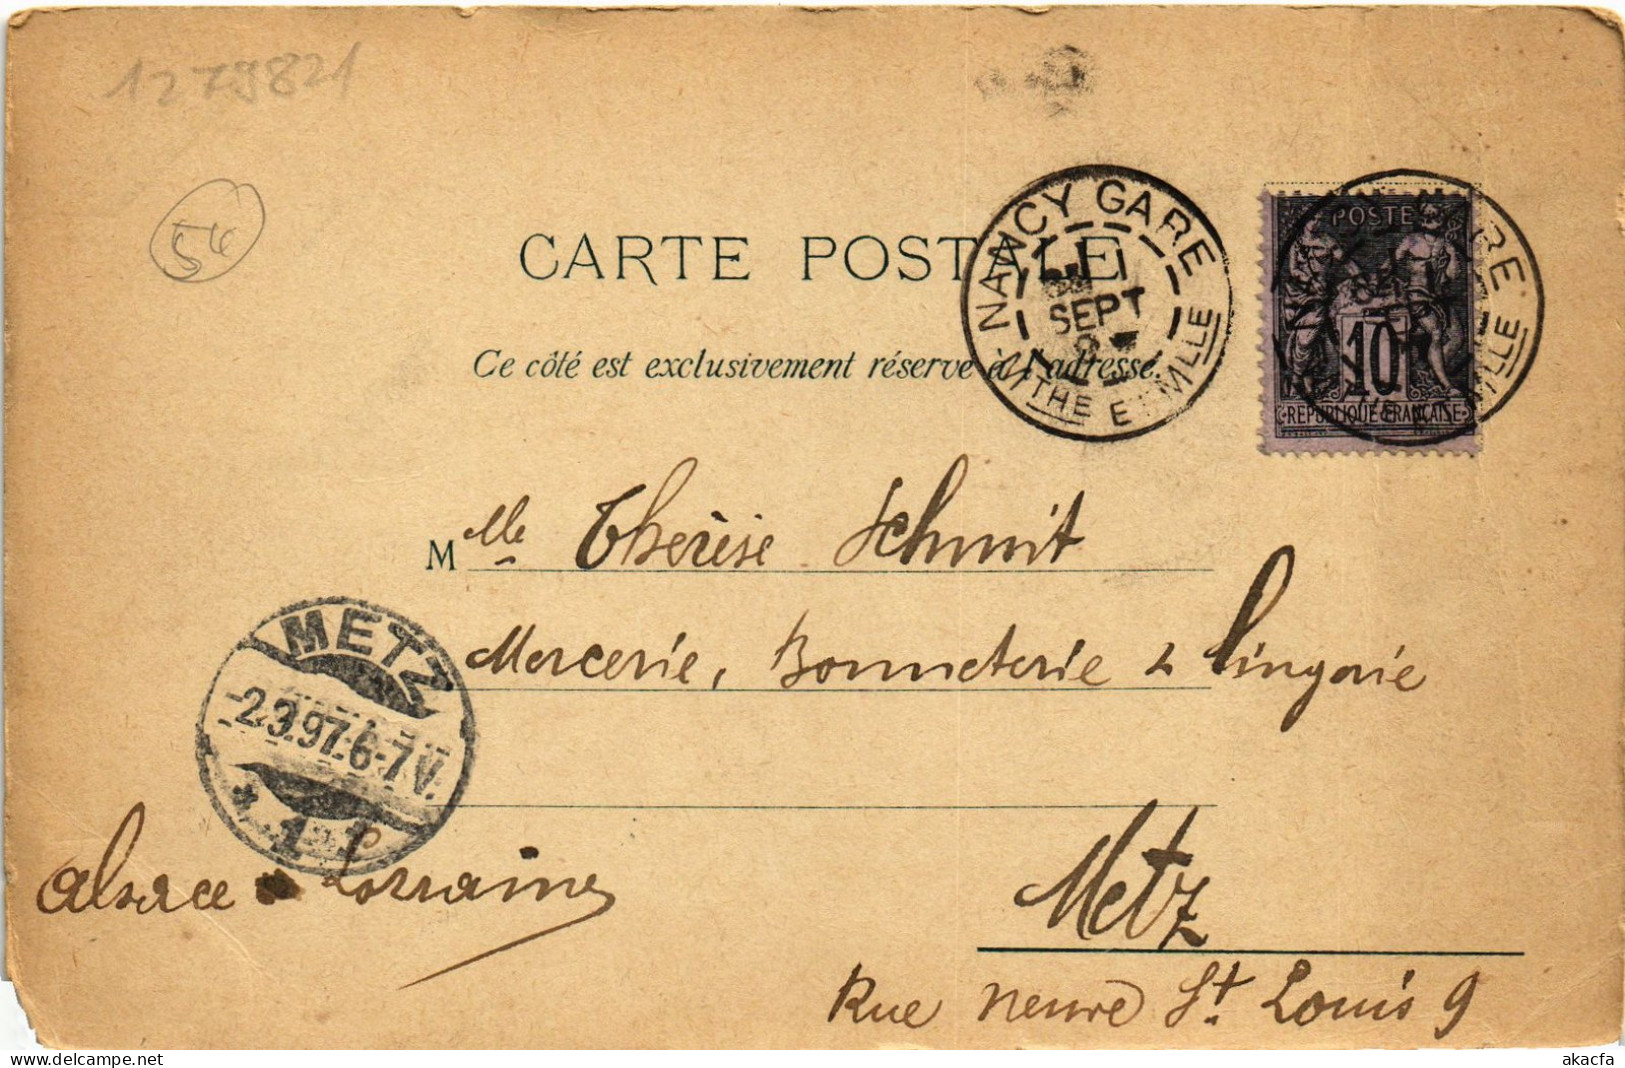 1279821
54
CARTE POSTALE
Ce côté est exclusivement réservé à l'adresse.
NANCY GARE
SEPT
MTHE ET MLLE
POSTES
10
REPUBLIQUE FRANÇAISE
Mlle Thérèse Schmit
Mercerie, Bonneterie & Lingerie
METZ
-2.3.97.6-7V.
* 1
Alsace Lorraine
Metz
Rue neuve St. Louis 9
akacfa